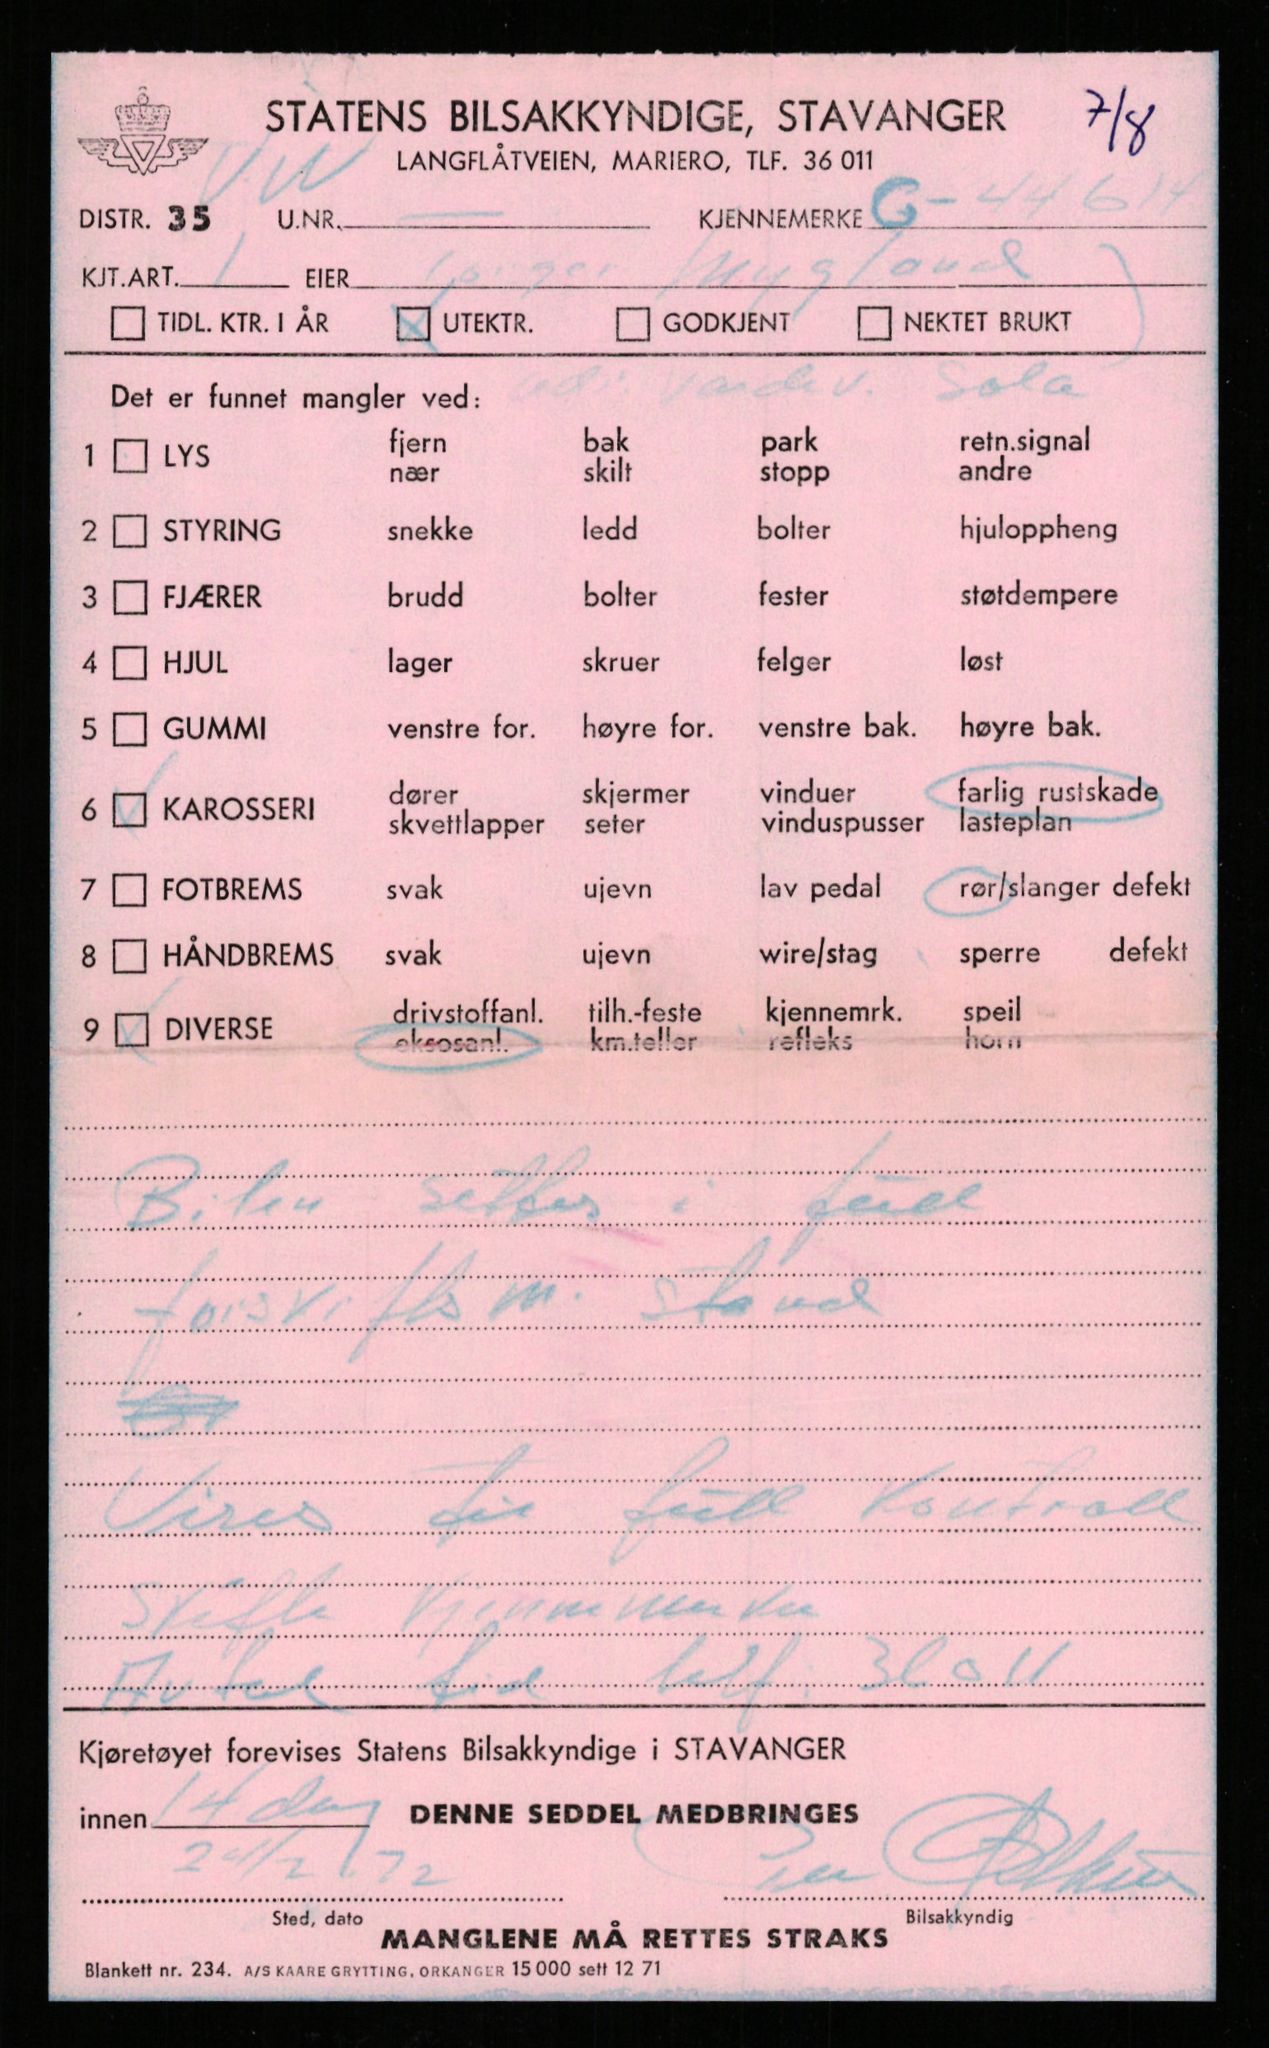 STATENS BILSAKKYNDIGE, STAVANGER 7/8
LANGFLÅTVEIEN, MARIERO, TLF. 36 011
V.W
DISTR. 35 U.NR. — KJENNEMERKE G-44614
KJT.ART. 1 EIER Mygland
TIDL. KTR. I ÅR UTEKTR. GODKJENT NEKTET BRUKT
Sola
Det er funnet mangler ved:
1 LYS fjern bak park retn.signal
nær skilt stopp andre
2 STYRING snekke ledd bolter hjuloppheng
3 FJÆRER brudd bolter fester støtdempere
4 HJUL lager skruer felger løst
5 GUMMI venstre for. høyre for. venstre bak. høyre bak.
6 KAROSSERI dører skjermer vinduer farlig rustskade
skvettlapper seter vinduspusser lasteplan
7 FOTBREMS svak ujevn lav pedal rør/slanger defekt
8 HÅNDBREMS svak ujevn wire/stag sperre defekt
9 DIVERSE drivstoffanl. tilh.-feste kjennemrk. speil
eksosanl. km.teller refleks horn
Bilen settes i full
forskriftsm. stand
Vises for full kontroll
Skifte kjennemerke
Avtal tid telf: 36011
Kjøretøyet forevises Statens Bilsakkyndige i STAVANGER
innen 14 dag DENNE SEDDEL MEDBRINGES
24/2 72
Sted, dato Bilsakkyndig
MANGLENE MÅ RETTES STRAKS
Blankett nr. 234. A/S KAARE GRYTTING, ORKANGER 15 000 sett 12 71